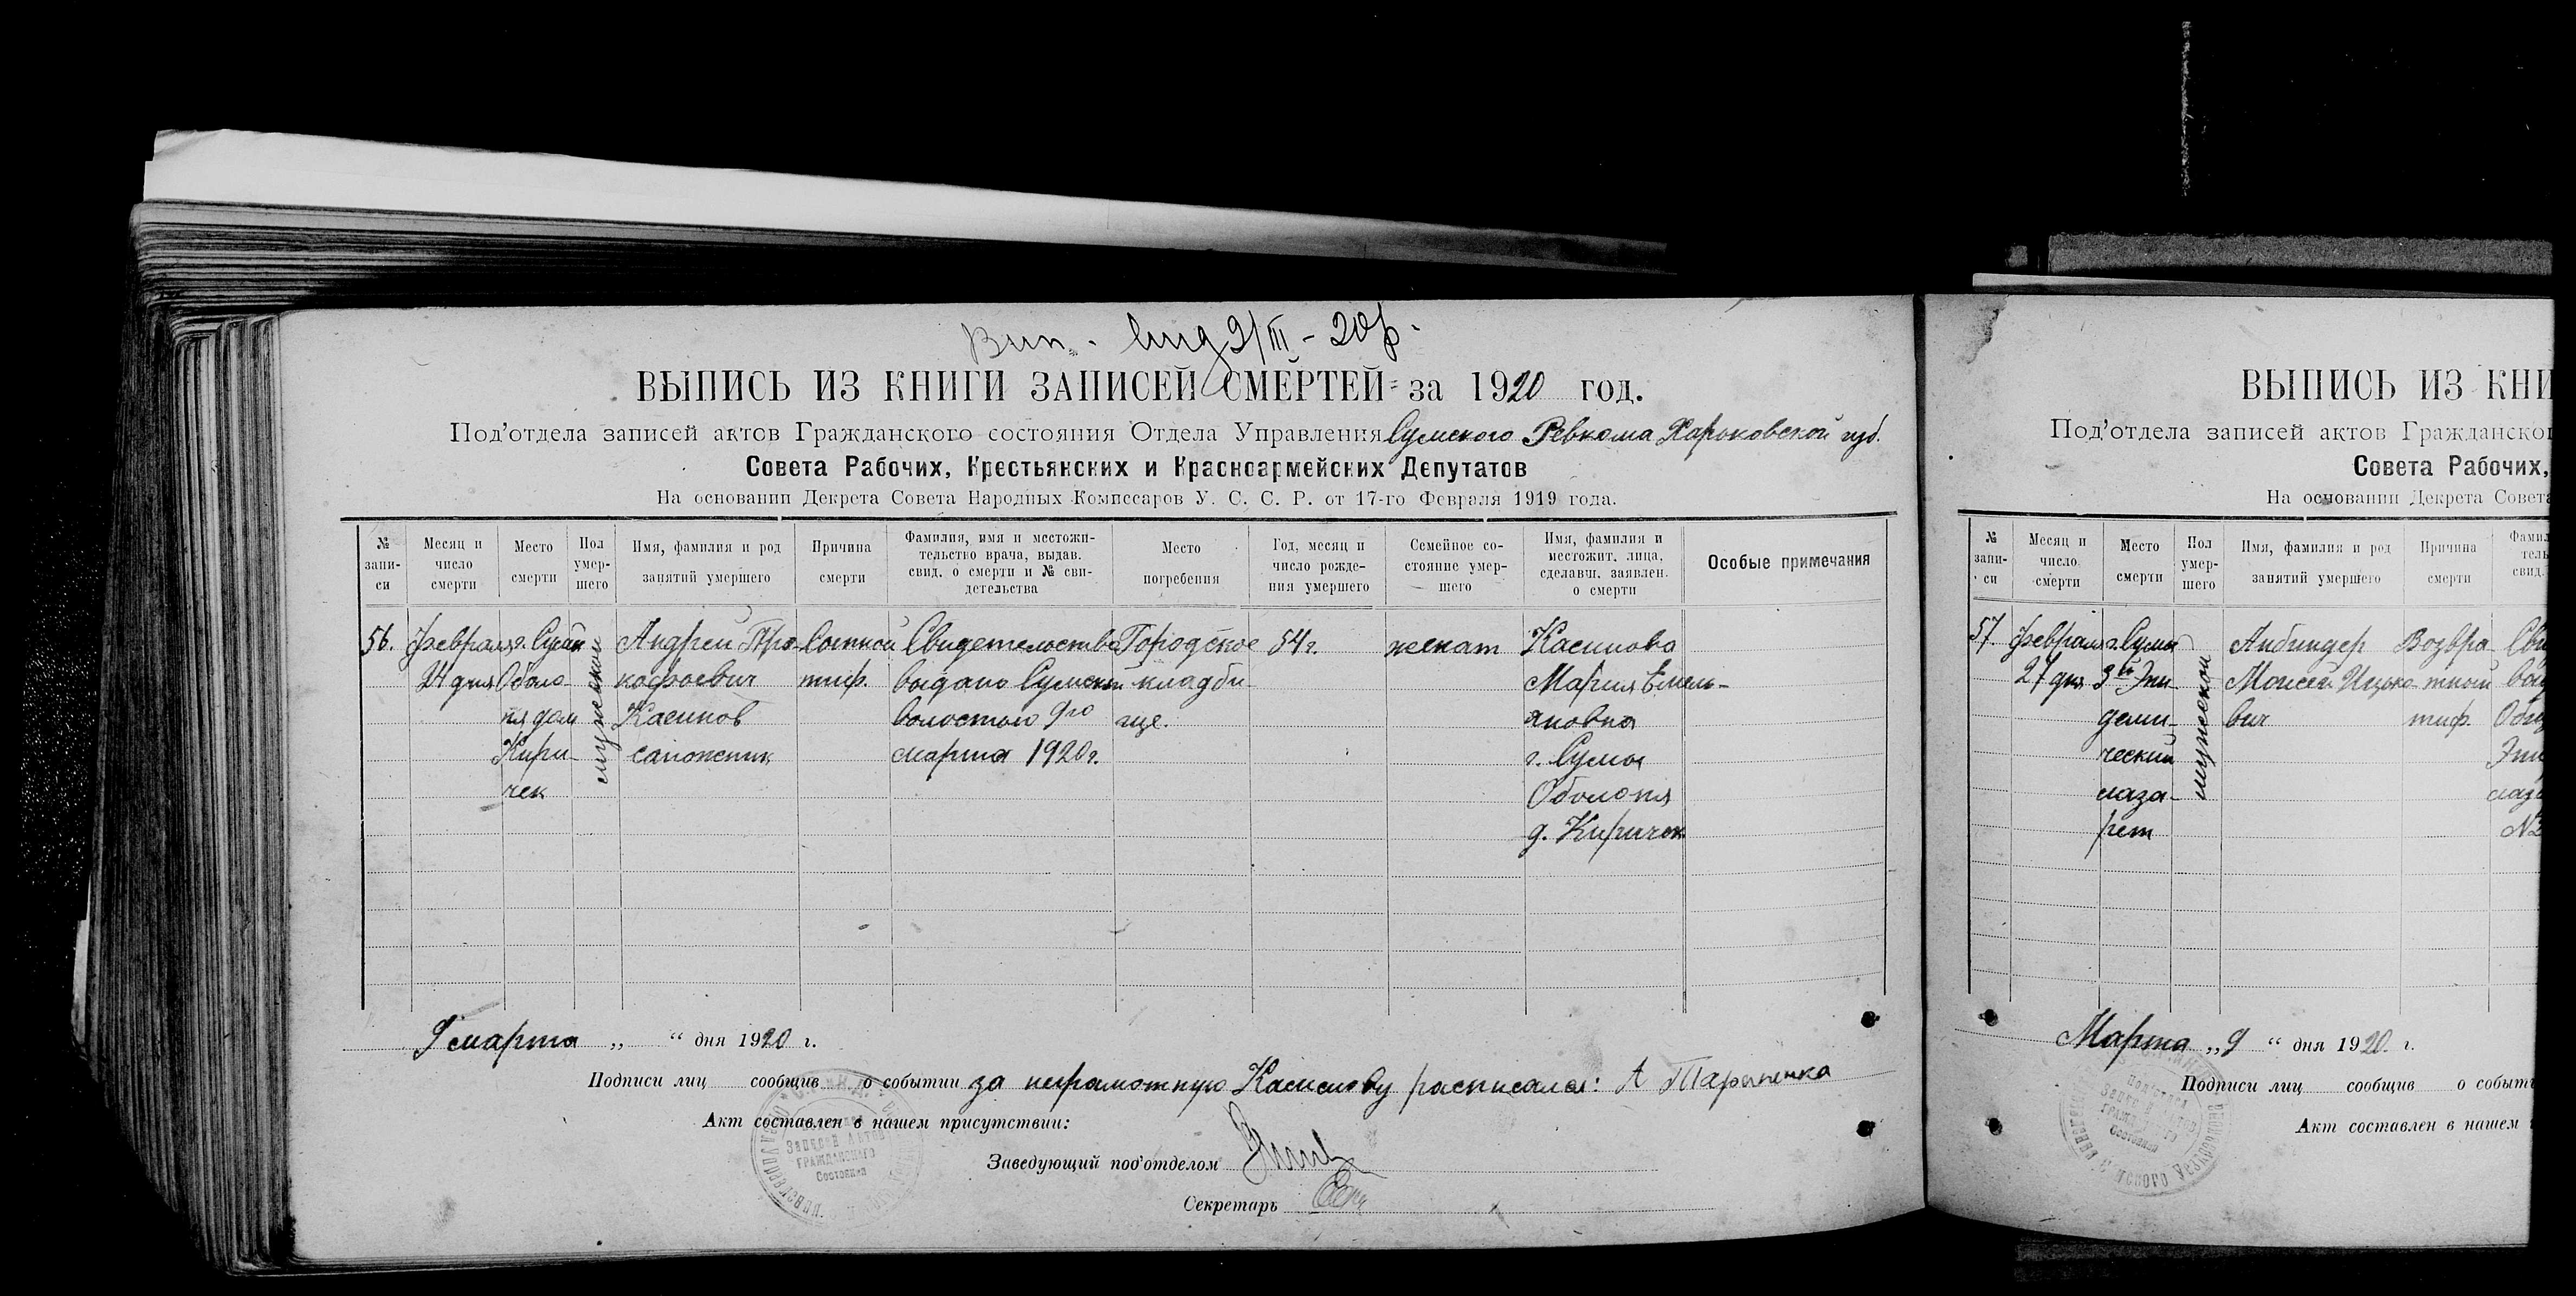 Вип. вид 9/III - 20 р.
ВЫПИСЬ ИЗ КНИГИ ЗАПИСЕЙ СМЕРТЕЙ за 1920 год.
Под'отдела записей актов Гражданского состояния Отдела Управления Сумского Ревкома Харьковской губ.
Совета Рабочих, Крестьянских и Красноармейских Депутатов
На основании Декрета Совета Народных Комиссаров У. С. С. Р. от 17-го Февраля 1919 года.
№ запи- си
Месяц и число смерти
Место смерти
Пол умер- шего
Имя, фамилия и род занятий умершего
Причина смерти
Фамилия, имя и местожи- тельство врача, выдав. свид. о смерти и № сви- детельства
Место погребения
Год, месяц и число рожде- ния умершего
Семейное со- стояние умер- шего
Имя, фамилия и местожит. лица, сделавш. заявлен. о смерти
Особые примечания
56. февраля г. Сумы мужской Андрей Про- Сыпной Свидетельство Городское 54 г. женат Касилова
24 дня Оболо- кофьевич тиф. выдано Сумским кладби Мария Емель-
ня дом Касилов волостью 9го ще. яновна
Кири- сапожник марта 1920 г. г. Сумы
чек Оболоня
д. Киричек
9 марта „ “ дня 1920 г.
Подписи лиц сообщив о событии за неграмотную Касилову расписался: А Тараненко
Акт составлен в нашем присутствии:
Заведующий под'отделом
Секретарь
Записей Актов
Гражданского
Состояния
ВЫПИСЬ ИЗ КНИ
Под'отдела записей актов Гражданског
Совета Рабочих,
На основании Декрета Совета
№ запи- си
Месяц и число смерти
Место смерти
Пол умер- шего
Имя, фамилия и род занятий умершего
Причина смерти
Фамил тель свид.
57 февраля г. Сумы мужской Анбиндер Возвра Сви
27 дня 3й Эпи Моисей Ицько тный выд
деми- вич тиф.
ческий Эпи
лаза- лаза
рет №
Марта „9 “ дня 1920. г.
Подписи лиц сообщив о событ
Акт составлен в нашем